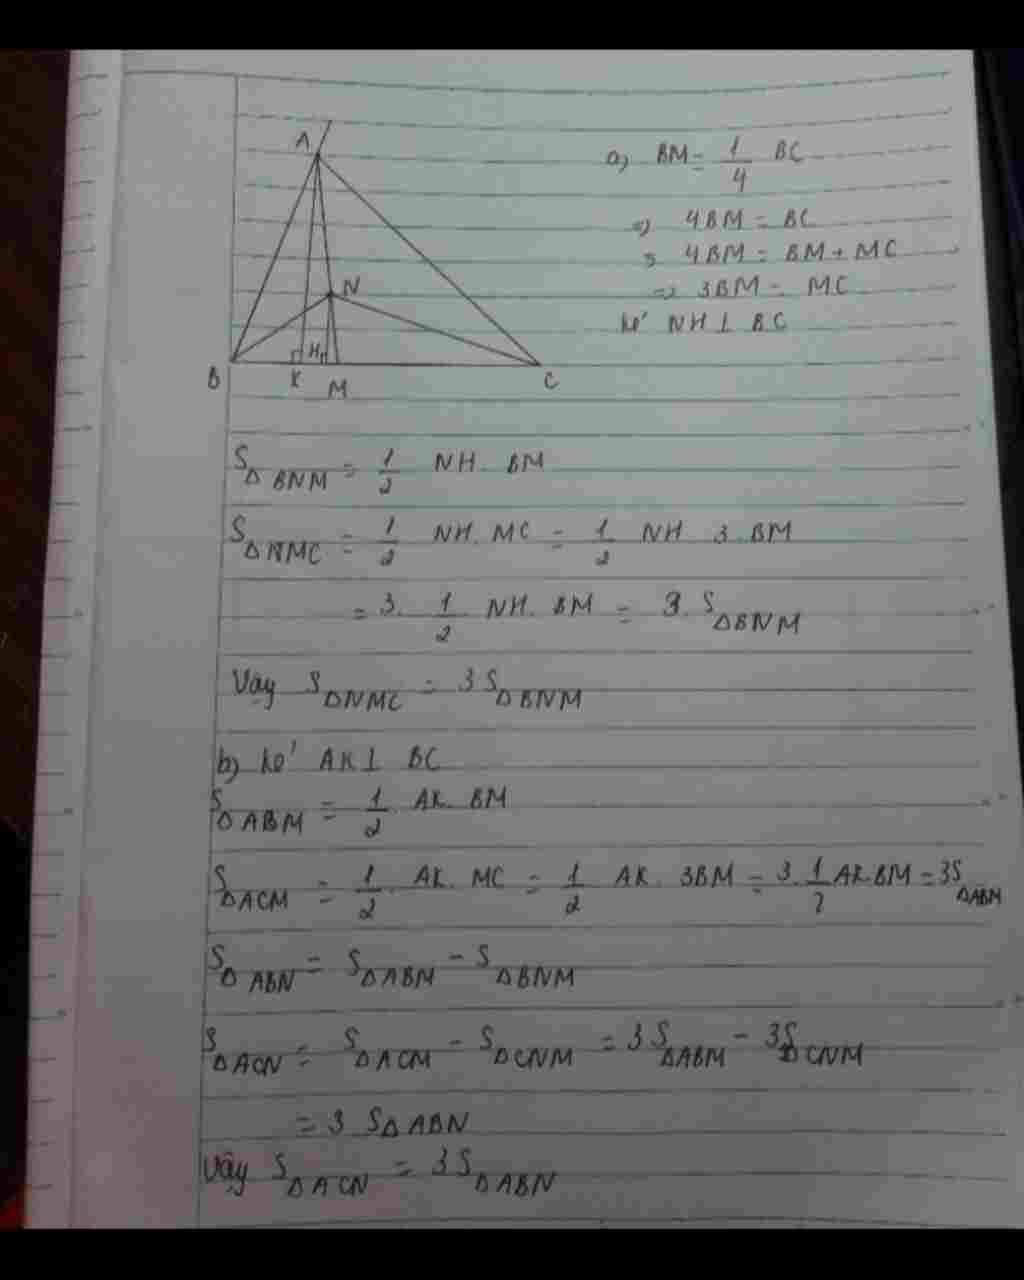 A
N
B
K
H
M
C
a) BM = 1/4 BC
=> 4BM = BC
=> 4BM = BM + MC
=> 3BM = MC
kẻ NH ⊥ BC
S△BNM = 1/2 NH. BM
S△NMC = 1/2 NH. MC = 1/2 NH 3 BM
= 3. 1/2 NH. BM = 3. S△BNM
Vậy S△NMC = 3S△BNM
b) kẻ AK ⊥ BC
S△ABM = 1/2 AK. BM
S△ACM = 1/2. AK. MC = 1/2 AK. 3BM = 3. 1/2 AK.BM = 3S△ABM
S△ABN = S△ABM - S△BNM
S△ACN = S△ACM - S△CNM = 3S△ABM - 3S△CNM
= 3 S△ABN
Vậy S△ACN = 3S△ABN